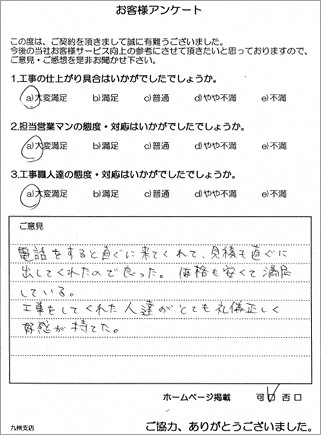 お客様アンケート
この度は、ご契約を頂きまして誠に有難うございました。
今後の当社お客様サービス向上の参考にさせて頂きたいと思っておりますので、
ご意見・ご感想を是非お聞かせ下さい。
1.工事の仕上がり具合はいかがでしたでしょうか。
a)大変満足 b)満足 c)普通 d)やや不満 e)不満
2.担当営業マンの態度・対応はいかがでしたでしょうか。
a)大変満足 b)満足 c)普通 d)やや不満 e)不満
3.工事職人達の態度・対応はいかがでしたでしょうか。
a)大変満足 b)満足 c)普通 d)やや不満 e)不満
ご意見
電話をすると直ぐに来てくれて、見積も直ぐに
出してくれたので良かった。価格も安くて満足
している。
工事をしてくれた人達がとても礼儀正しく
好感が持てた。
ホームページ掲載 可 否
九州支店
ご協力、ありがとうございました。